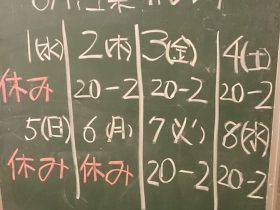 1(水) 2(木) 3(金) 4(土)
休み 20-2 20-2 20-2
5(日) 6(月) 7(火) 8(水)
休み 休み 20-2 20-2